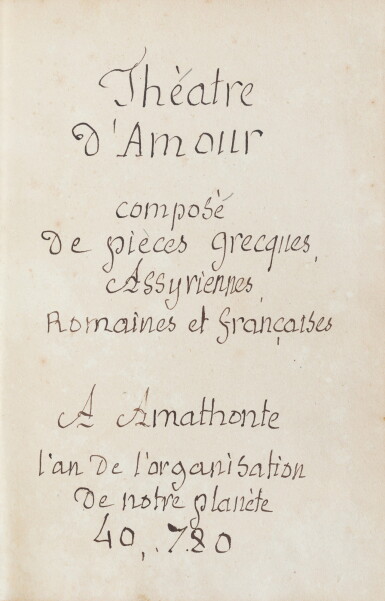 Théatre
D'Amour
composé
De pièces grecques,
Assyriennes,
Romaines et françaises
A Amathonte
l'an De l'organisation
De notre planète
40,.780